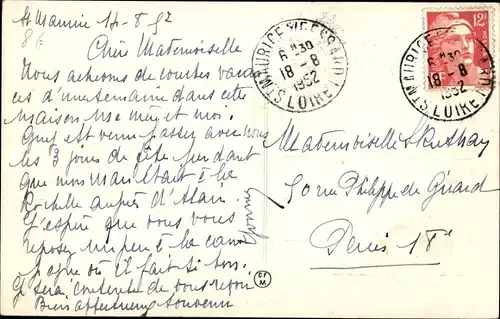 St Maurice 17-8-52
Chère Mademoiselle
Nous achevons de courtes vacan
ces d'une semaine dans cette
maison ma mère et moi.
est venu passer avec nous
les 3 jours de fête pendant
que mon Mari était à la
Rochelle auprès d'Alain.
J'espère que vous vous
reposez un peu à la cam
pagne où il fait si bon.
Je serai contente de vous revoir
Bien affectueux souvenir
Yvonne
ST MAURICE S/DESSARD LOIRET
6 H 30
18 - 8
1952
12F
ST MAURICE
6 H 30
18 - 8
1952
LOIRET
Mademoiselle
50 rue Philippe de Girard
Paris 18e
CF
M